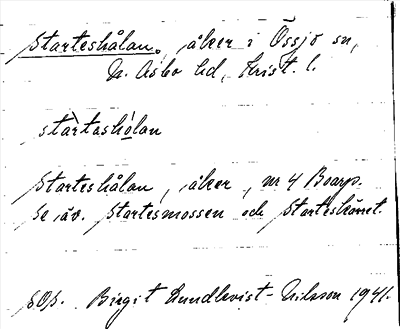 Starteshålan, åker i Össjö sn,
N. Åsbo hd, Krist. l.
stàrtəshòlan
Starteshålan, åker, nr 4 Boarp.
Se äv. Startesmossen och Starteskärret.
SOp. Birgit Lundkvist-Nilsson 1941.